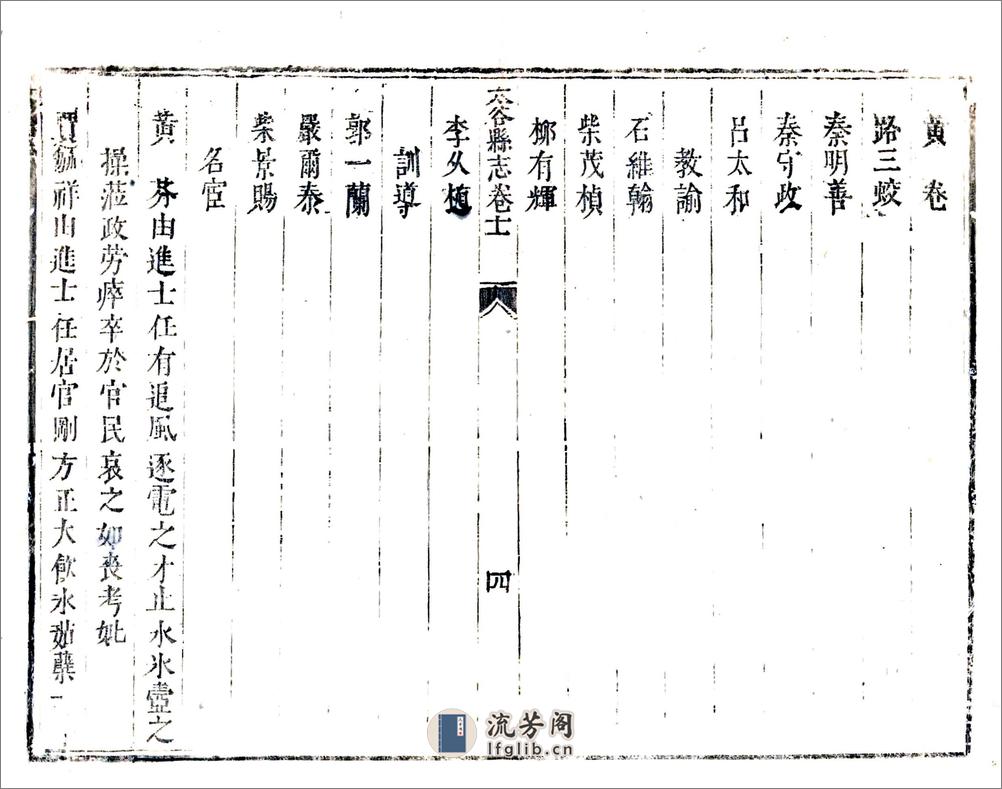 黃　卷
路三蛟
秦明善
秦守政
呂太和
教諭
石維翰
柴茂楨
郴有輝
太谷縣志卷十一
四
李乆植
訓導
郭一蘭
嚴爾泰
柴景賜
名宦
黃　芬由進士任有追風逐電之才止水氷壺之
操蒞政勞瘁卒於官民哀之如喪考妣
祥由進士任居官剛方正大飲氷茹櫱一
流芳阁
lfglib.cn